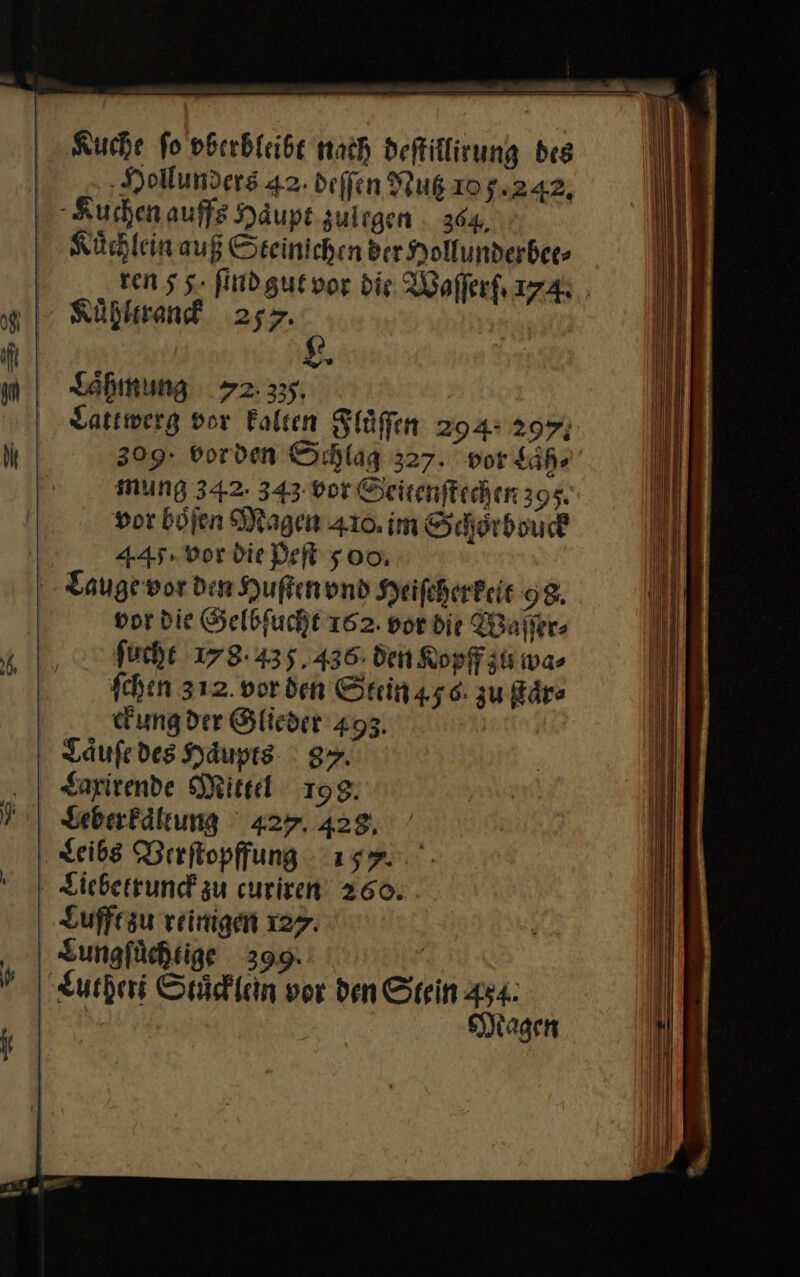 Kuche ſo vberbleibt nach deſtillirung des
Hollunders 42. deſſen Nutz 105. 242.
Kuchen auffs Haͤupt zulegen 364.
Kuͤchlein auß Steinichen der Hollunderbee⸗
ren 55. ſind gut vor die Waſſerſ. 174.
Kuͤhltranck 257.
L.
Laͤhmung 72. 335.
Lattwerg vor kalten Fluͤſſen 294. 297.
309. vor den Schlag 327. vor Laͤh⸗
mung 342. 343. vor Seitenſtechen 395.
vor boͤſen Magen 410. im Schoͤrbouck
445. vor die Peſt 500.
Lauge vor den Huſten vnd Heiſcherkeit 98.
vor die Gelbſucht 162. vor die Waſſer⸗
ſucht 178. 435. 436. den Kopff zu wa⸗
ſchen 312. vor den Stein 456. zu ſtaͤr⸗
ckung der Glieder 493.
Laͤuſe des Haͤupts 87.
Laxirende Mittel 198.
Leberkaͤltung 427. 428.
Leibs Verſtopffung 157.
Liebetrunck zu curiren 260.
Lufft zu reinigen 127.
Lungſuͤchtige 399.
Lutheri Stuͤcklein vor den Stein 454.
Magen